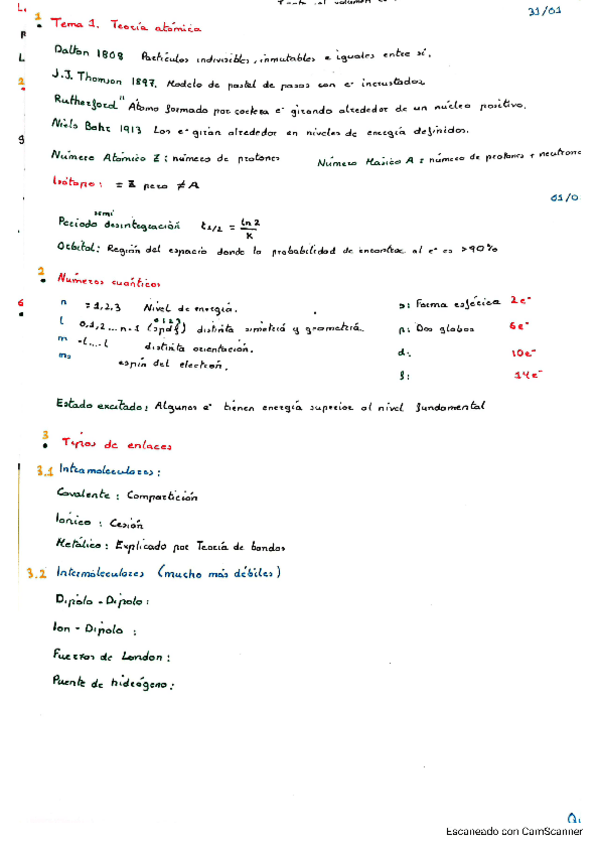 31/01
1. Tema 1. Teoría atómica
Dalton 1808 Partículas indivisibles, inmutables e iguales entre sí.
J.J. Thomson 1897. Modelo de pastel de pasas con e⁻ incrustados
Rutherford " Átomo formado por corteza e⁻ girando alrededor de un núcleo positivo.
Niels Bohr 1913 Los e⁻ giran alrededor en niveles de energía definidos.
Número Atómico Z: número de protones Número Másico A: número de protones + neutrone
Isótopo: = Z pero ≠ A
01/0
semi
Periodo desintegración t1/2 = ln 2 / K
Orbital: Región del espacio donde la probabilidad de encontrar al e⁻ es >90%
2. Números cuánticos
n = 1,2,3 Nivel de energía. s: Forma esférica 2e⁻
l 0,1,2...n-1 (spdf) distinta simetría y geometría. p: Dos globos 6e⁻
m -l...l distinta orientación. d: 10e⁻
ms espín del electron. f: 14e⁻
Estado excitado: Algunos e⁻ tienen energía superior al nivel fundamental
3. Tipos de enlaces
3.1 Intramoleculares:
Covalente: Compartición
Iónico: Cesión
Metálico: Explicado por Teoría de bandas
3.2 Intermoleculares (mucho más débiles)
Dipolo - Dipolo:
Ion - Dipolo:
Fuerzas de London:
Puente de hidrógeno:
Escaneado con CamScanner